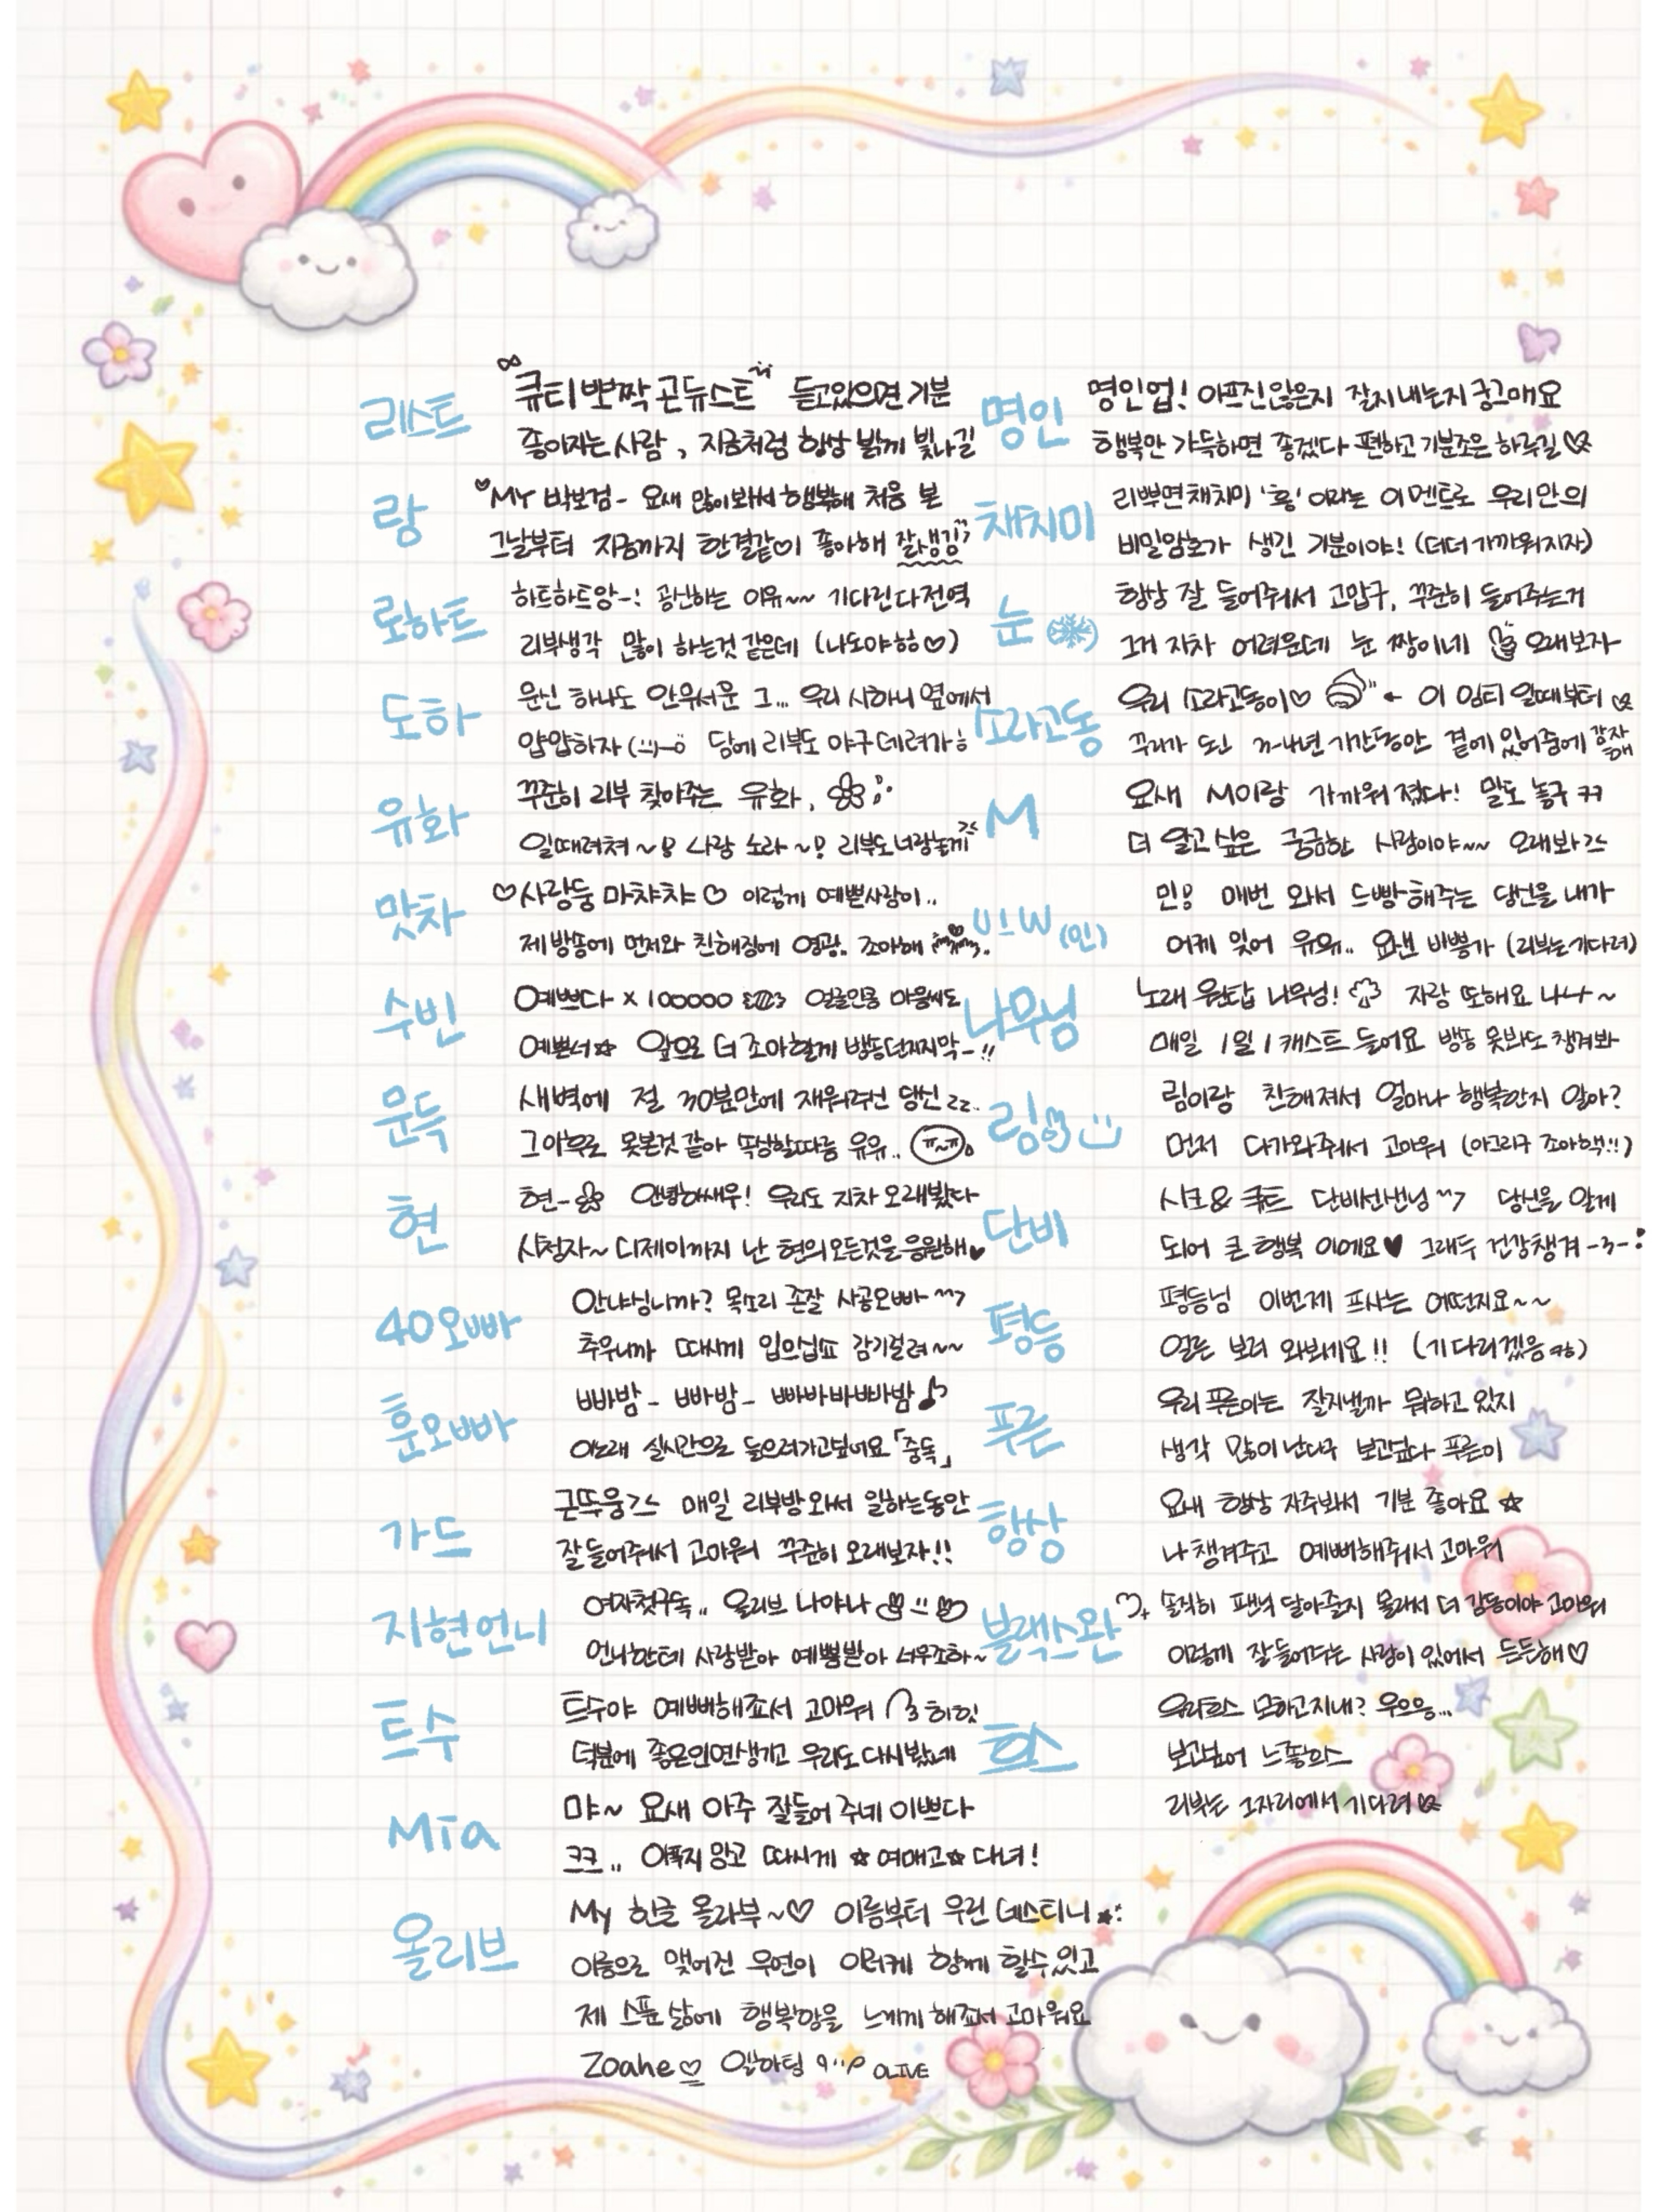 리스트
"큐티뽀짝 곤듀스트" 듣고있으면 기분
좋아지는 사람, 지금처럼 항상 밝게 빛나길
랑
MY 박보검- 요새 많이봐서 행복해 처음 본
그날부터 지금까지 한결같이 좋아해 잘생김
로하트
하트하트앙-! 광신하는 이유~~ 기다린다전역
리부생각 많이 하는것 같은데 (나도야ㅎㅎ♡)
도하
문신 하나도 안무서운 그... 우리 시하니 옆에서
얍얍하자 담에 리부도 야구 데려가ㅎ
유화
꾸준히 리부 찾아주는 유화,
일때려쳐~! 나랑 노라~! 리부도너랑놀게
맛차
♡사랑둥 마챠챠♡ 이렇게 예쁜사람이..
제 방송에 먼저와 친해짐에 영광. 조아해
수빈
예쁘다 x 100000 얼굴만큼 마음씨도
예쁜너☆ 앞으로 더 조아할게 뱅송던지지막-!!
문득
새벽에 절 30분만에 재워려던 당신 zz..
그 이후로 못본것 같아 속상할따름 유유.. ㅠ~ㅠ
현
현- 안녕하쌔우! 우리도 지차 오래봤다
시청자~ 디제이까지 난 현의모든것을 응원해♥
40오빠
안냐심니까? 목소리 존잘 사공오빠
추우니까 따시게 입으십쇼 감기걸려~~
훈오빠
빠바밤- 빠바밤- 빠바바바빠밤♪
이노래 실시간으로 들으러가고싶어요「중독」
가드
근뚜웅ㄱㅅ 매일 리부방와서 일하는동안
잘들어줘서 고마워 꾸준히 오래보자!!
지현언니
여자첫구독.. 올리브 나야나
언니한테 사랑받아 예쁨받아 너무조하~
트수
트수야 예뻐해죠서 고마워 히힛
덕분에 좋은인연생기고 우리도 다시봤네
Mia
먀~ 요새 아주 잘들어 주네 이쁘다
ㅋㅋ.. 아푸지 망고 따시게 ☆여매고☆ 다녀!
올리브
My 한글 올라부~♡ 이름부터 우린 데스티니
이름으로 맺어진 우연이 이러케 함께 할수있고
제 스푼 삶에 행복함을 느께게 해죠서 고마워요
Zoahe♡ 알아텅 OLIVE
명인
명인업! 아프진않은지 잘지내는지 궁그매요
행복만 가득하면 좋겠다 편하고 기분조은 하루길♡
채치미
리뿌면채치미 '흥' 이라는 이 멘트로 우리 만의
비밀암호가 생긴 기분이야! (더더 가까워지자)
눈
항상 잘 들어줘서 고맙구, 꾸준히 들어주는거
그거 자차 어려운데 눈 짱이네 오래보자
소라고동
우리 소라고동이♡ ← 이 임티 일때부터
꾸리가 도신 n-4년 기간동안 곁에 있어줌에 감자해
M
요새 M이랑 가까워졌다! 말도 놓구 ㅋㅋ
더 알고싶은 궁금한 사람이야~~ 오래봐ㄱㅅ
민W(민)
민! 매번 와서 드빵해주는 당신을 내가
어케 잊어 유유.. 요샌 바쁠가 (리부는기다려)
나우님
노래 원탑 나우님! 자랑 또해요 나나~
매일 1일 1캐스트 들어요 뱅송 못봐도 챙겨봐
림
림이랑 친해져서 얼마나 행복한지 알아?
먼저 다가와줘서 고마워 (아그리구 조아핵!!)
단비
시크& 큐트 단비선샌님 당신을 알게
되어 큰 행복 이에요♥ 그래두 건강챙겨 -3-
평등
평등님 이번제 프사는 어떤지요~~
얼른 보러 와보세요!! (기다리겠음ㅋㅎ)
푸른
우리 푸른이는 잘지낼까 뭐하고 있지
생각 많이 난다구 보고싶다 푸른이
항상
요새 항상 자주봐서 기분 좋아요☆
나 챙겨주고 예뻐해줘서 고마워
블랙스완
솔직히 팬닉 달아줄지 몰라서 더 감동이야 고마워
이렇게 잘들어주는 사람이 있에서 든든해♡
흐스
우리흐스 모하고지내? 우으응...
보고싶어 느좋흐스
리부는 그자리에서 기다려